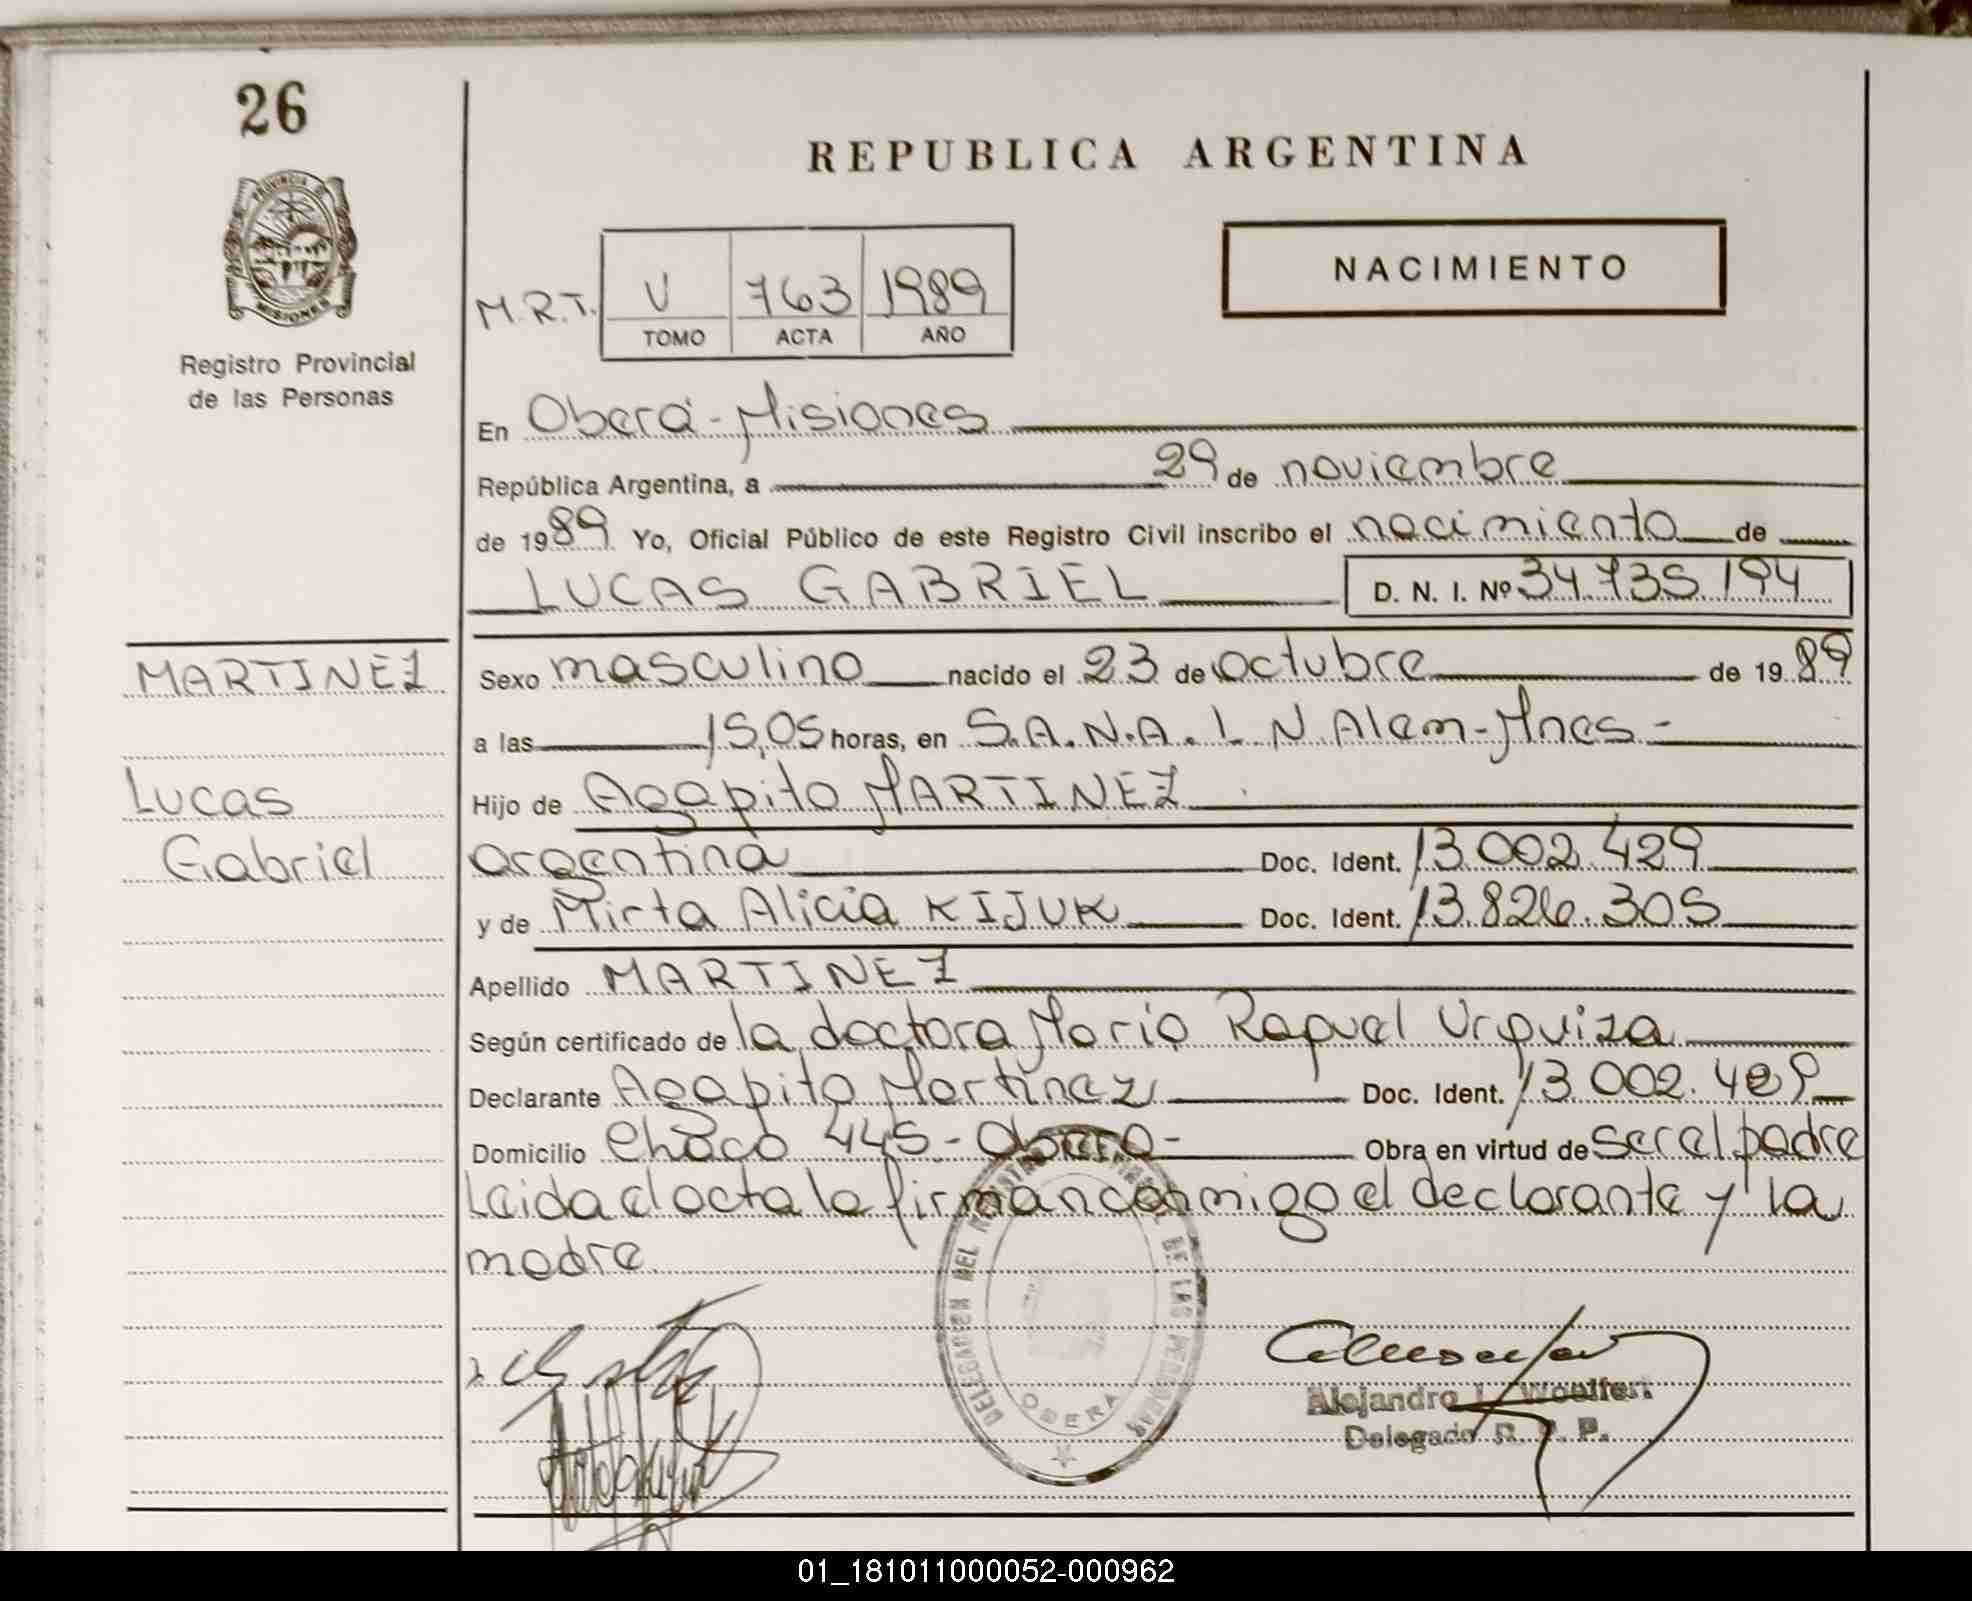 26
REPUBLICA ARGENTINA
PROVINCIA DE
MISIONES
Registro Provincial
de las Personas
NACIMIENTO
M.R.T. V 763 1989
TOMO ACTA AÑO
En Oberá - Misiones
República Argentina, a 29 de noviembre
de 1989 Yo, Oficial Público de este Registro Civil inscribo el nacimiento de
LUCAS GABRIEL D. N. I. Nº 34.735.194
MARTINEZ
Lucas
Gabriel
Sexo masculino nacido el 23 de octubre de 1989
a las 15,05 horas, en S.A.N.A. L N Alem - Mnes -
Hijo de Agapito MARTINEZ
argentina Doc. Ident. 13.002.429
y de Mirta Alicia KIJUK Doc. Ident. 13.826.305
Apellido MARTINEZ
Según certificado de la doctora María Raquel Urquiza
Declarante Agapito Martínez Doc. Ident. 13.002.429
Domicilio Chaco 445 - Oberá - Obra en virtud de ser el padre
Leida el acta la firman conmigo el declarante y la
madre
DELEGACION DEL REGISTRO PROVINCIAL DE LAS PERSONAS
OBERA
Alejandro Woelfert
Delegado R. P. P.
01_181011000052-000962